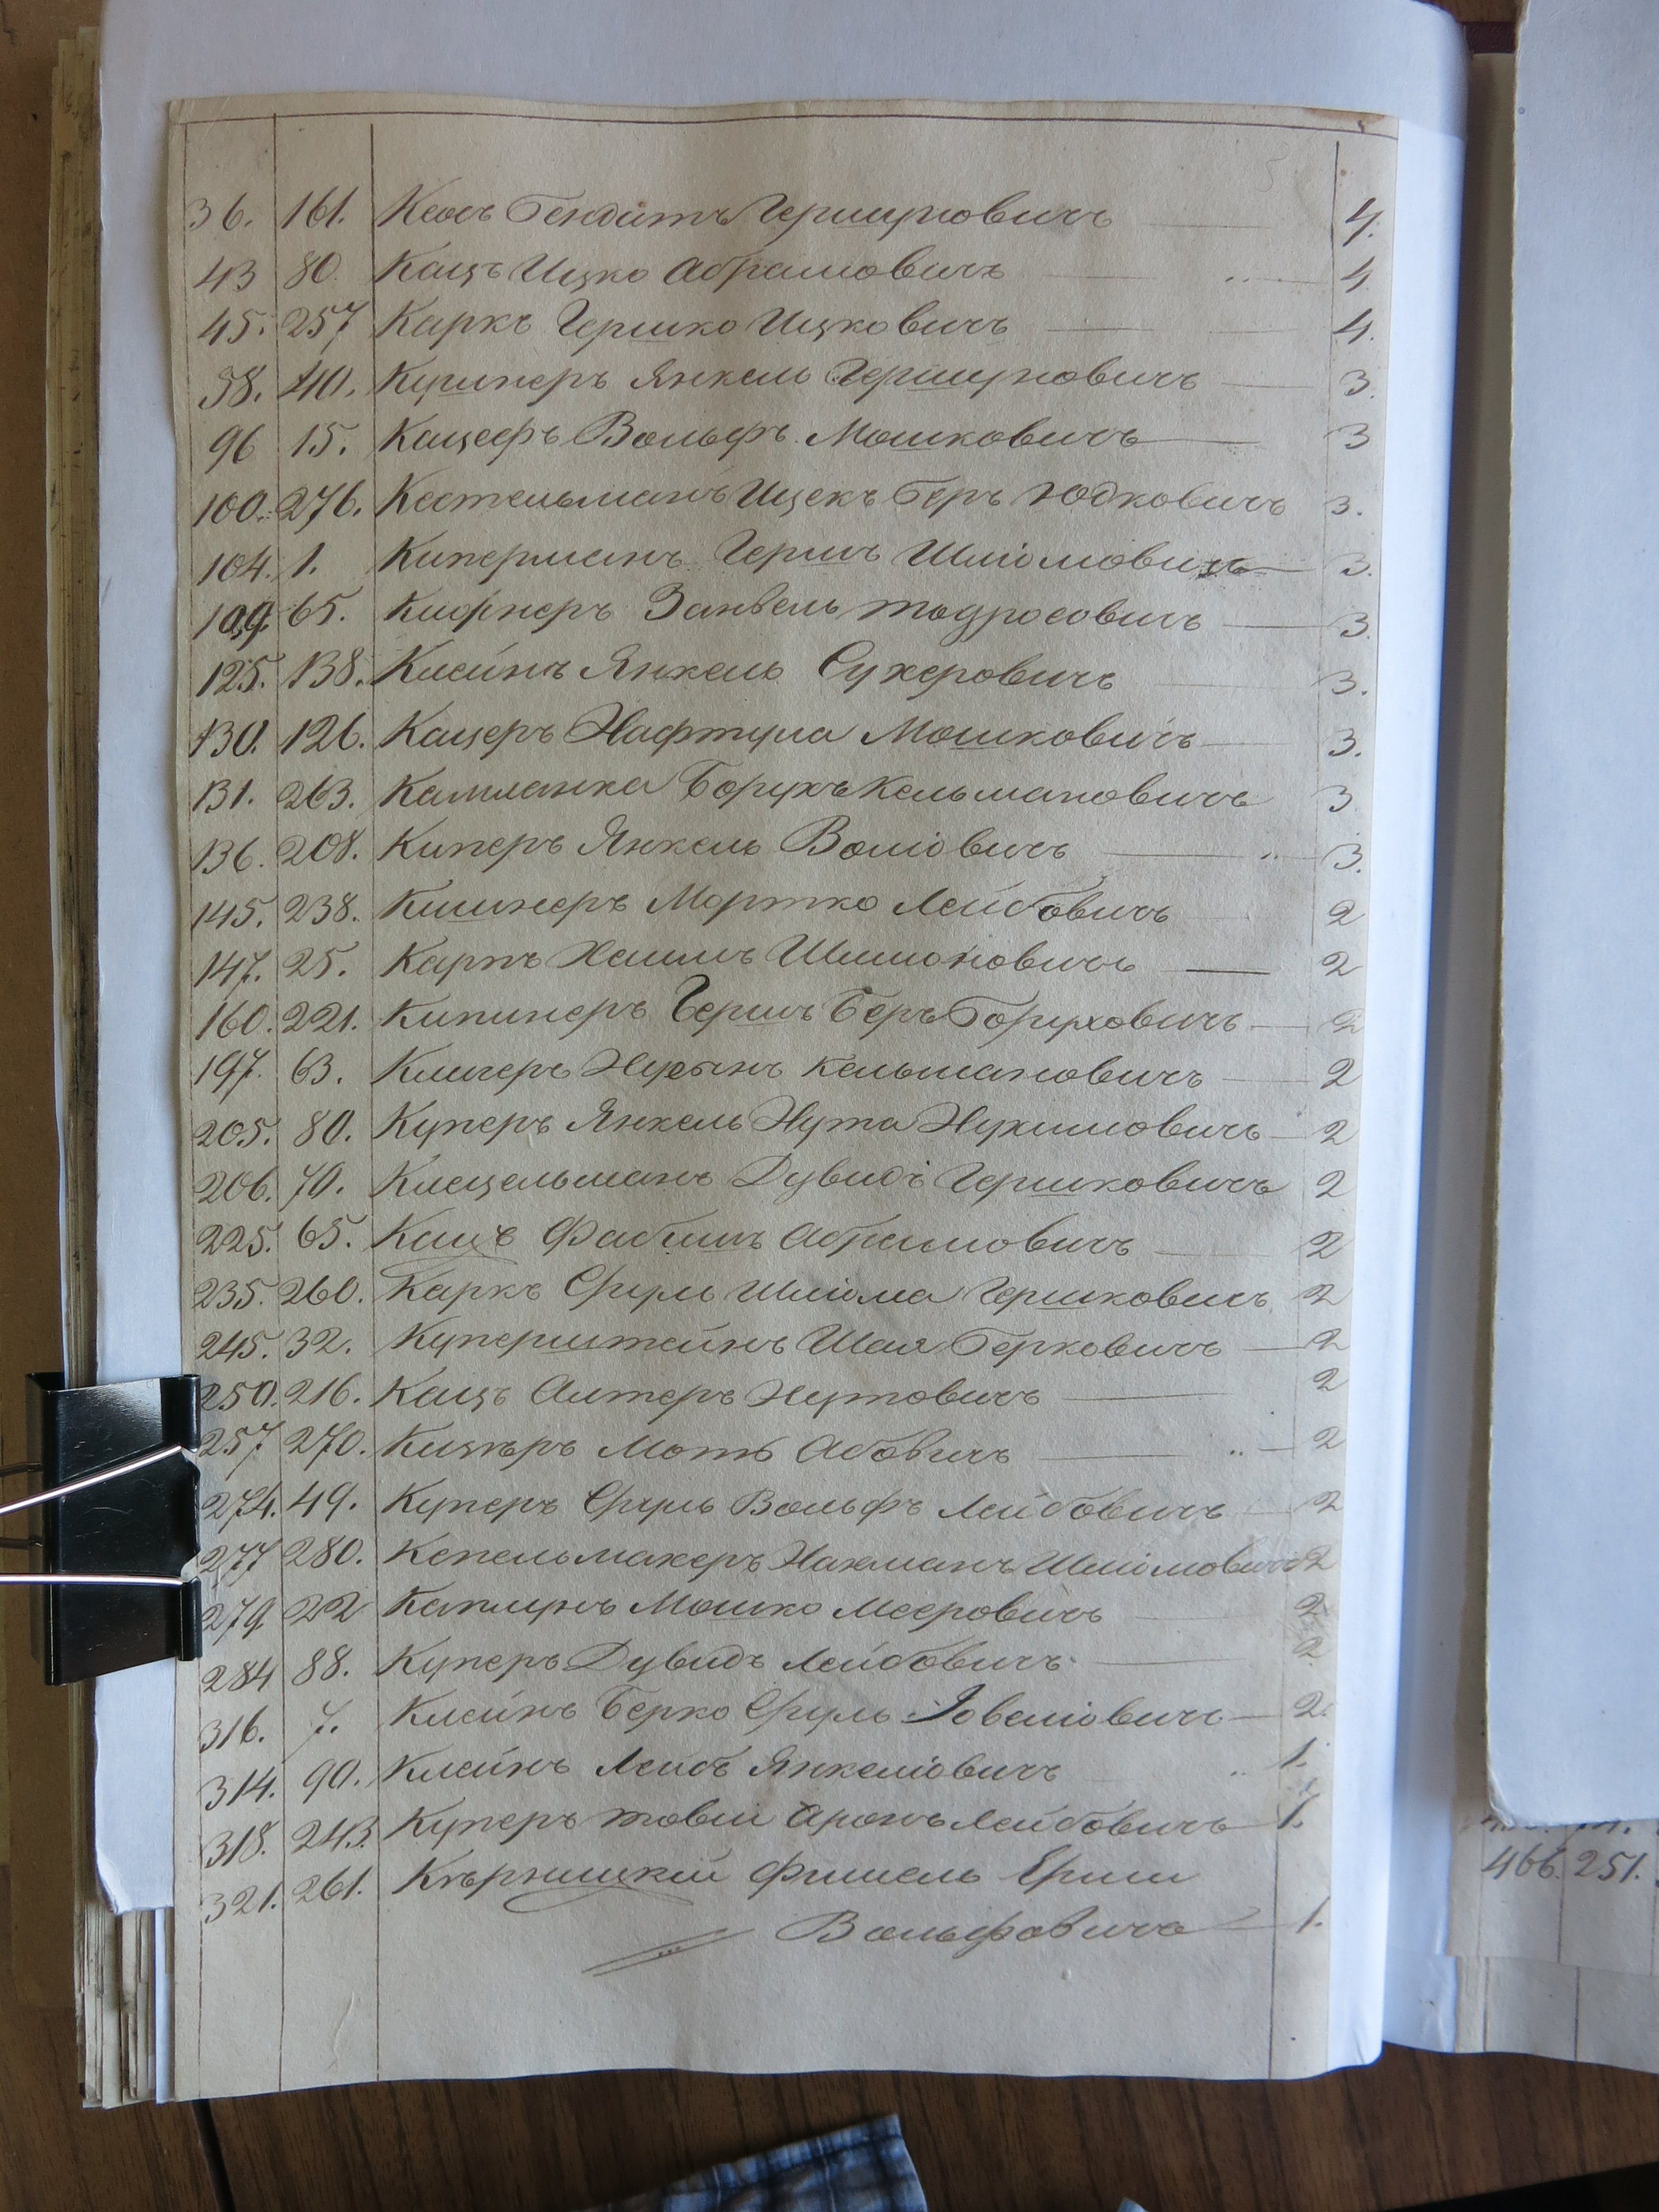 36. 161. Косъ Бендитъ Гершуновичъ 4.
43 80. Кацъ Ицко Абрамовичъ 4
45. 257 Каркъ Гершко Ицковичъ 4.
58. 40. Кушнеръ Янкель Гершуновичъ 3.
96 15. Кацефъ Вольфъ Мошковичъ 3
100. 276. Кестельманъ Ицекъ Беръ Юдковичъ 3.
104. 1. Киперманъ Гершъ Шліомовичъ 3.
109. 65. Кифнеръ Занвель Тодросовичъ 3.
125. 138. Клейнъ Янкель Сухеровичъ 3.
130. 126. Кацеръ Нафтула Мошковичъ 3.
131. 263. Камлянка Борухъ Кельмановичъ 3
136. 208. Киперъ Янкель Воліовичъ 3.
145. 238. Кишнеръ Мортко Лейбовичъ 2
147. 25. Карпъ Хаимъ Шимоновичъ 2
160. 221. Гершъ Беръ Боруховичъ 2
197. 63. Клигеръ Кельмановичъ 2
205. 80. Куперъ Янкель Нута Нухимовичъ 2
206. 70. Клецельманъ Дувидъ Гершковичъ 2
225. 65. Кацъ Фабишъ Абрамовичъ 2
235. 260. Каркъ Сруль Шліома Гершковичъ 2
245. 32. Куперштейнъ Шая Берковичъ 2
250. 216. Кацъ Алтеръ Нутовичъ 2
257 270. Мотъ Абовичъ 2
274. 49. Куперъ Сруль Вольфъ Лейбовичъ 2
277 280. Кепельмахеръ Нахманъ Шліомовичъ 2
279 22 Каплунъ Мошко Мееровичъ 2
284 88. Куперъ Дувидъ Лейбовичъ 2
316. 7. Клейнъ Берко Сруль Іовеліовичъ 2.
314. 90. Клейнъ Лейбъ Янкеліовичъ 1.
318. 243. Куперъ Товій Аронъ Лейбовичъ 1.
321. 261. Кѣрницкій Фишель Ерши
Вольфовичъ 1.
466. 251.